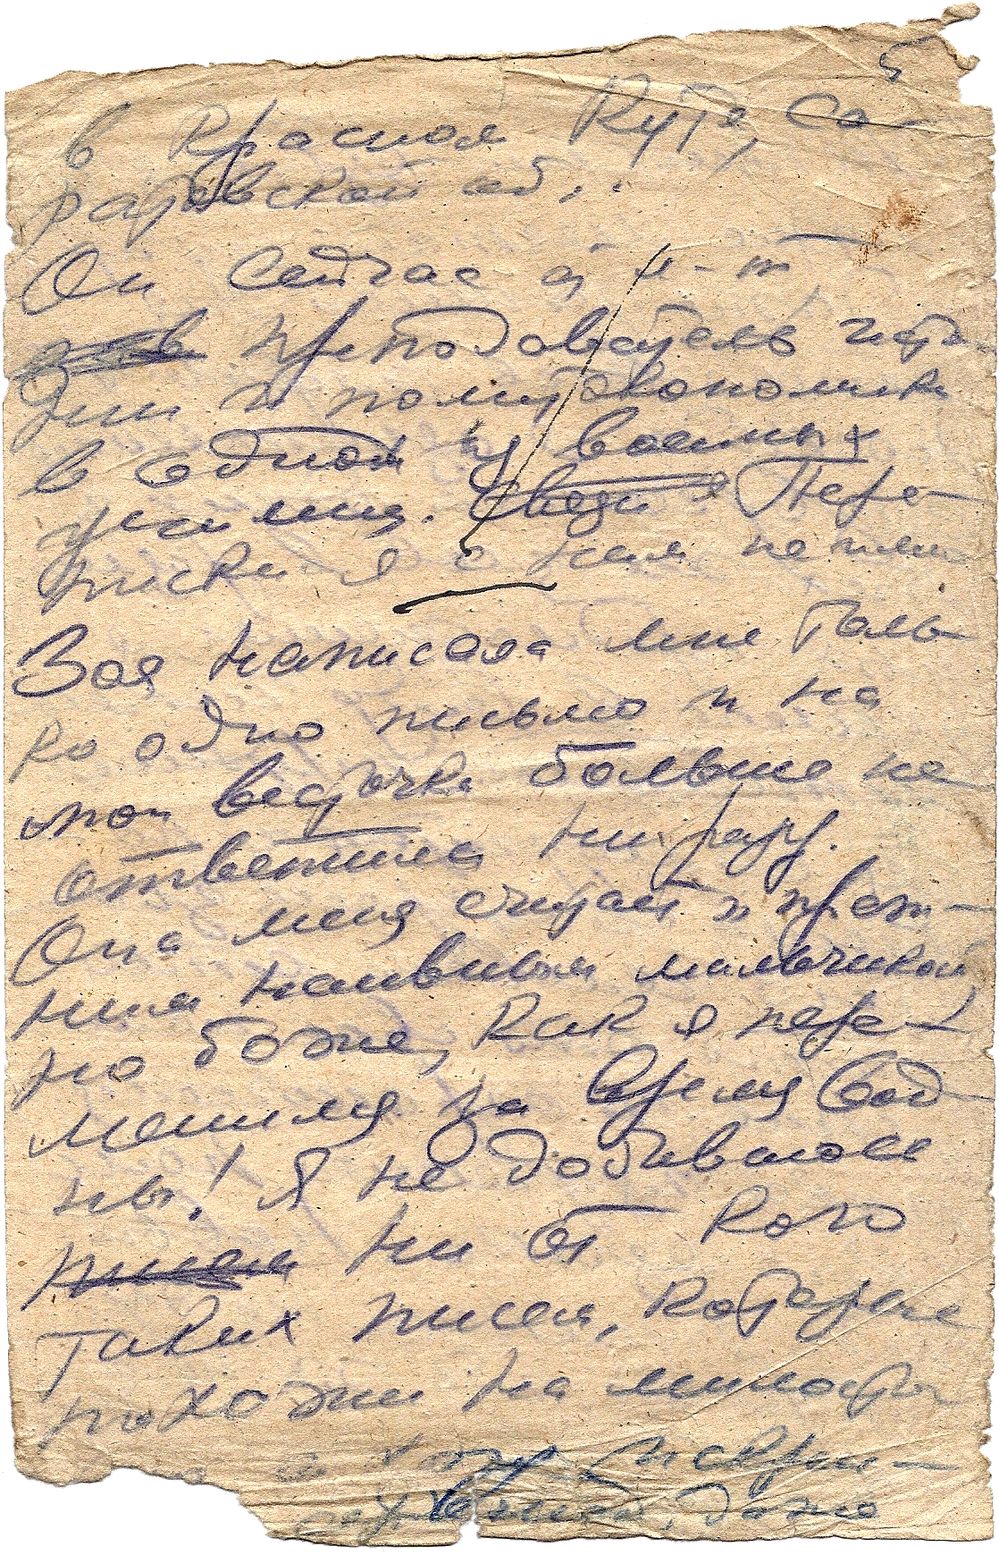 5
в Красном Куте, Са-
ратовской об..
Он сейчас ст. л-т
преподаватель исто
рии и политэкономики
в одной из военных
училищ. Связи я Пере-
писки я с ним не имею
Зоя написала мне толь-
ко одно письмо и на
мои весточки больше не
ответила ни разу.
Она меня считает преж-
ним наивным мальчиком,
но боже, как я пере-
менился за время вой-
ны! Я не добивался
писем ни от кого
таких писем, которые
похожи на милосты
а хочу искрен-
даже